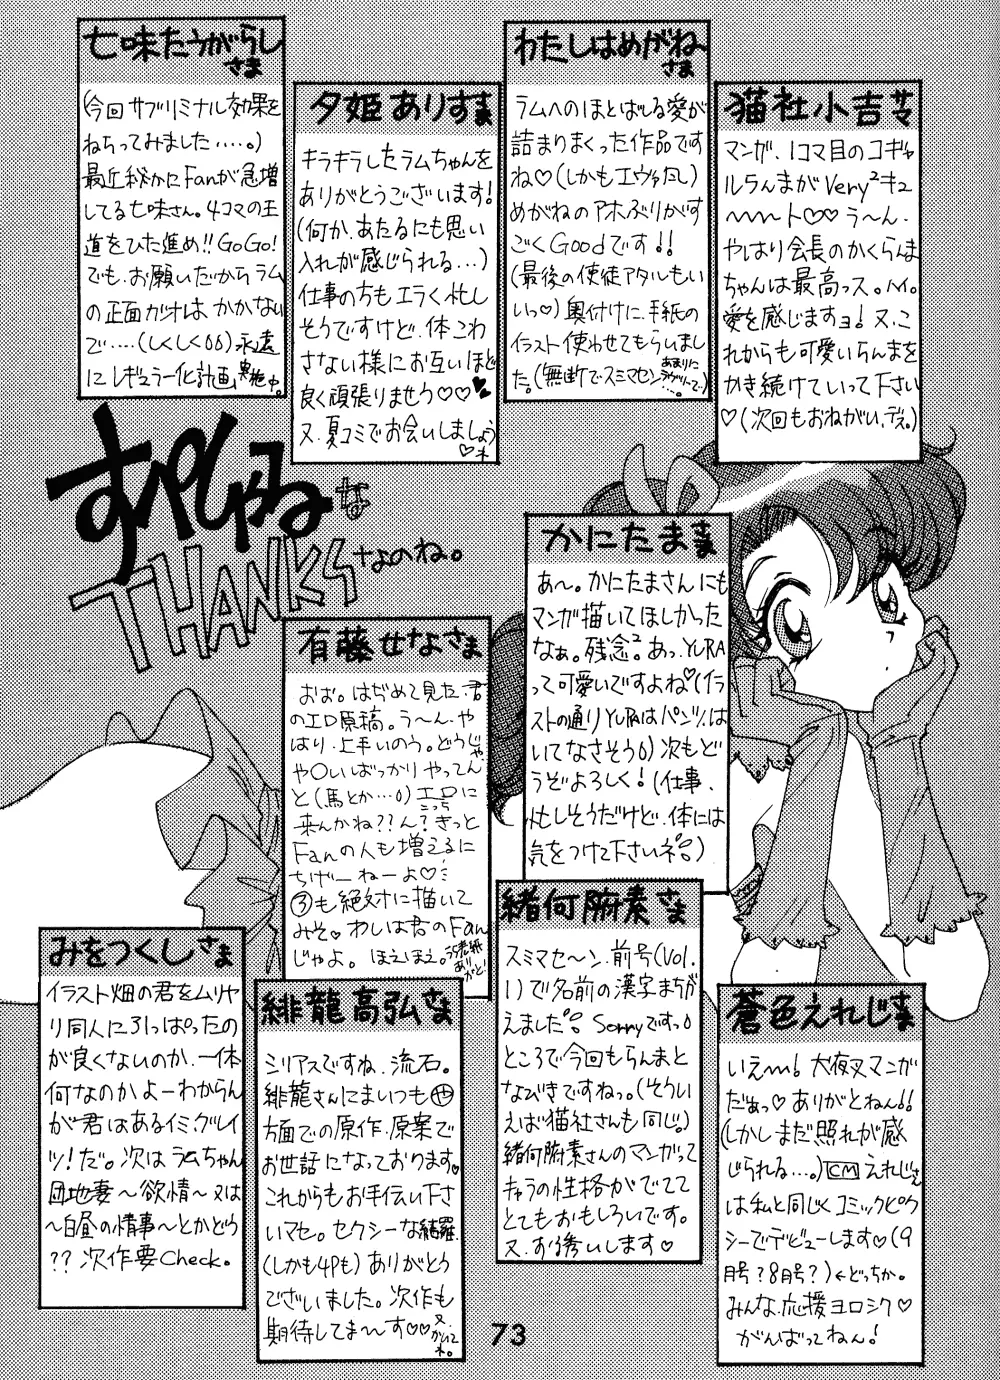 七味たうがらし
さま
(今回サブリミナル効果を
ねらってみました‥‥。)
最近秘かにFanが急増
してる七味さん。4コマの王
道をひた進め!!GoGo!
でも、お願いだからラム
の正面ガオはかかない
で‥‥(しくしく00)永遠
にレギュラー化計画実施中。
夕姫ありすさま
キラキラしたラムちゃんを
ありがとうございます!
(何か、あたるにも思い
入れが感じられる…)
仕事の方もエラく忙し
そうですけど、体こわ
さない様にお互いほど
良く頑張りませう♡♡♥
又、夏コミでお会いしましょう
♡ネ
わたしはめがね
さま
ラムへのほとばしる愛が
詰まりまくった作品です
ね♡(しかもエヴァだし)
めがねのアホぶりがす
ごくGoodです!!
(最後の使徒アタルもい
いっ♡)奥付けに、手紙の
イラスト使わせてもらいまし
た。(無断でスミマセン
猫社小吉サマ
マンガ、1コマ目のコギャ
ルらんまがVery²キュ
〜〜〜ト♡♡う〜ん、
やはり会長のかくらんま
ちゃんは最高っス。ハイ。
愛を感じますョ!又、こ
れからも可愛いらんまを
かき続けていって下さい
♡(次回もおねがい、デス。)
すぺしゃるな
THANKSなのね。
かにたまさま
あ〜。かにたまさんにも
マンガ描いてほしかった
なぁ。残念²。あっ、YURA
って可愛いですよね♡(イラ
ストの通りYURAはパンツ、は
いてなさそう0)次もど
うぞよろしく!(仕事、
忙しそうだけど、体には
気をつけて下さいネ。)
有藤せなさま
おお。はぢめて見た、君
のエロ原稿。う〜ん、や
はり、上手いのう。どうじゃ
や〇いばっかりやってん
と(馬とか…0)エロに
こっち
来んかね??ん?きっと
Fanの人も増えるに
ちげーねーよ♡
③も絶対に描いて
みそ♡わしは君のFan
じゃよ。ほえほえ。うら表紙ありがと!
緒何腑素さま
スミマセ〜ン、前号(Vol.
1)で名前の漢字まちが
えました。Sorryですっ0
ところで今回もらんまと
なびきですねっ。(そうい
えば猫社さんも同じ。)
緒何腑素さんのマンガって
キャラの性格がでてて
とてもおもしろいです。
又、お誘いします♡
みをつくしさま
イラスト畑の君をムリヤ
リ同人に引っぱったの
が良くないのか、一体
何なのかよーわからん
が君はあるイミ、グレイ
ツ!だ。次はラムちゃん
団地妻〜欲情〜又は
〜白昼の情事〜とかどう
??次作要Check。
緋龍高弘さま
シリアスですね、流石。
緋龍さんにまいつも㊛
方面での原作、原案で
お世話になっております。
これからもお手伝い下さ
いマセ。セクシーな綺羅
(しかも4Pも)ありがとう
ございました。次作も
期待してま〜す♡♡又、かいてネ。
蒼色えれじさま
いえ〜〜!犬夜叉マンガ
だぁっ♡ありがとねん!!
(しかしまだ照れが感
じられる…。)CMえれじさん
は私と同じくコミックピク
シーでデビューします♡(9
月号?8月号?)←どっちか。
みんな、応援ヨロシク♡
がんばってねん!
73